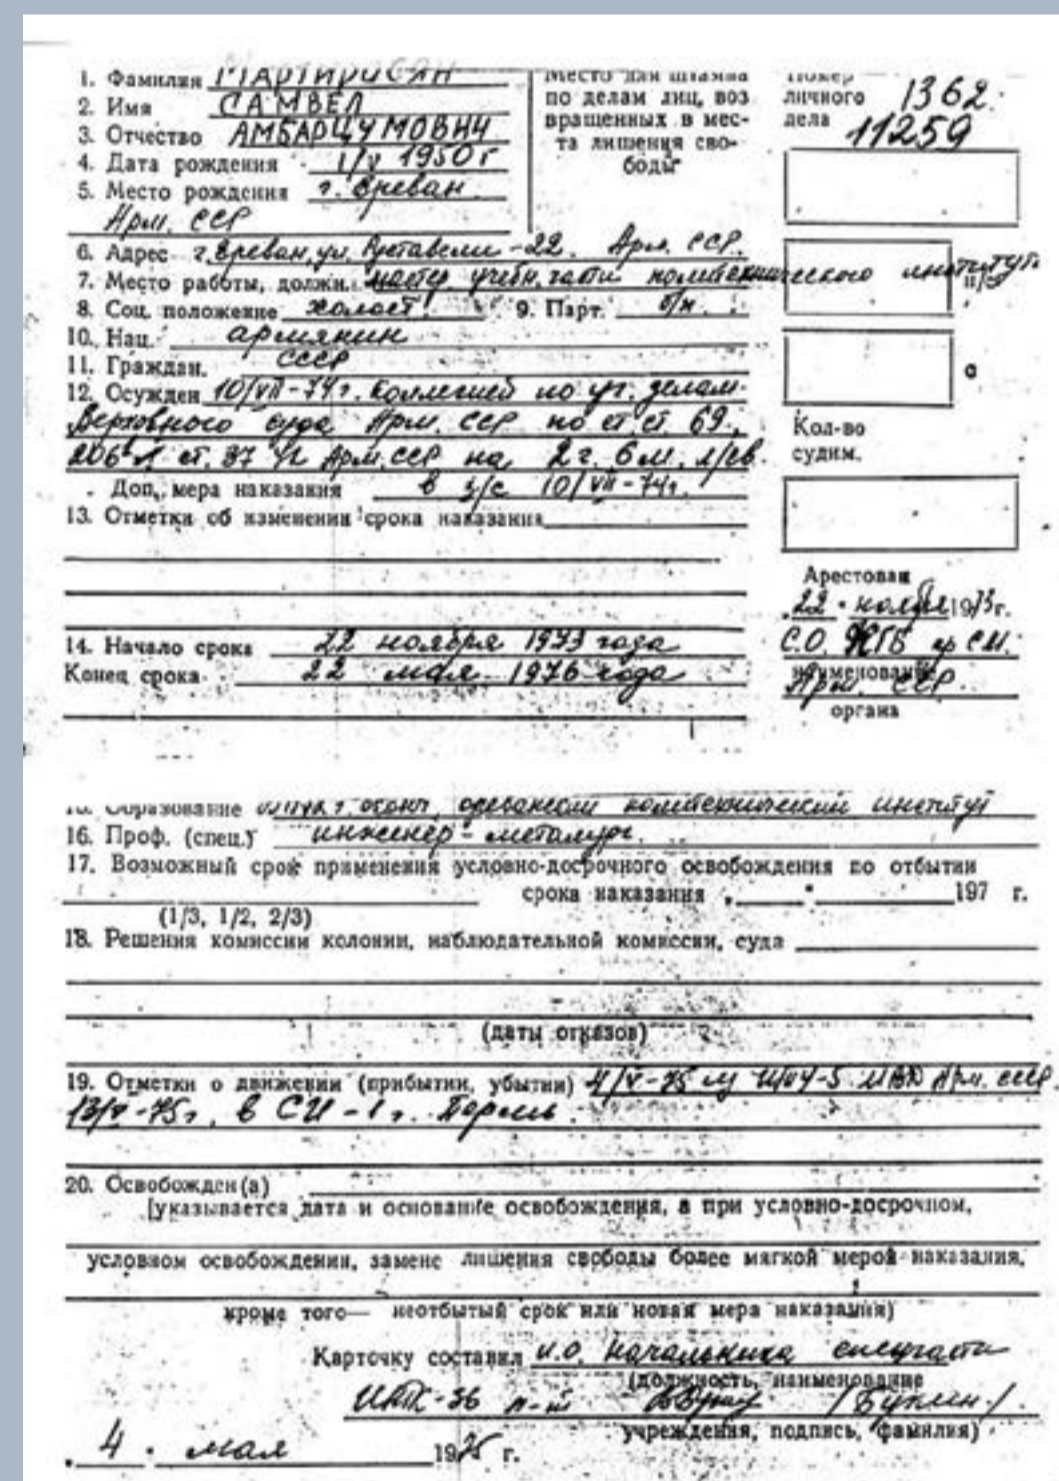 1. Фамилия МАРТИРОСЯН
2. Имя САМВЕЛ
3. Отчество АМБАРЦУМОВИЧ
4. Дата рождения 1/V 1950 г
5. Место рождения г. Ереван
Арм. ССР
Место для штампа
по делам лиц, воз
вращенных в мес-
та лишения сво-
боды
Номер
личного 1362
дела 11259
6. Адрес г. Ереван, ул. Руставели-22. Арм. ССР.
7. Место работы, должн. учебн. части политехнического института
8. Соц. положение холост. 9. Парт. б/п
10. Нац. армянин
11. Граждан. СССР
12. Осужден 10/VII-74г. Коллегией по уг. делам
Верховного суда Арм. ССР по ст. ст. 69,
206 ст. 37 УК Арм. ССР на 2 г. 6 м. л/св.
Доп. мера наказания в з/с 10/VII-74г.
13. Отметки об изменении срока наказания
14. Начало срока 22 ноября 1973 года
Конец срока 22 мая 1976 года
с
Кол-во
судим.
Арестован
22 ноября 1973г.
С.О. КГБ пр С.М.
наименование
Арм. ССР
органа
Образование политехнический институт
16. Проф. (спец.) инженер-металург.
17. Возможный срок применения условно-досрочного освобождения по отбытии
срока наказания 197 г.
(1/3, 1/2, 2/3)
18. Решения комиссии колонии, наблюдательной комиссии, суда
(даты отказов)
19. Отметки о движении (прибытии, убытии) 4/V-75 из МВД Арм. ССР.
13/V-75г. в СИ-1 г. Пермь.
20. Освобожден(а)
(указывается дата и основание освобождения, а при условно-досрочном,
условном освобождении, замене лишения свободы более мягкой мерой наказания,
кроме того— неотбытый срок или новая мера наказания)
Карточку составил и.о. начальника спецчасти
(должность, наименование
-36 /Букин/
учреждения, подпись, фамилия)
4. мая 1975 г.